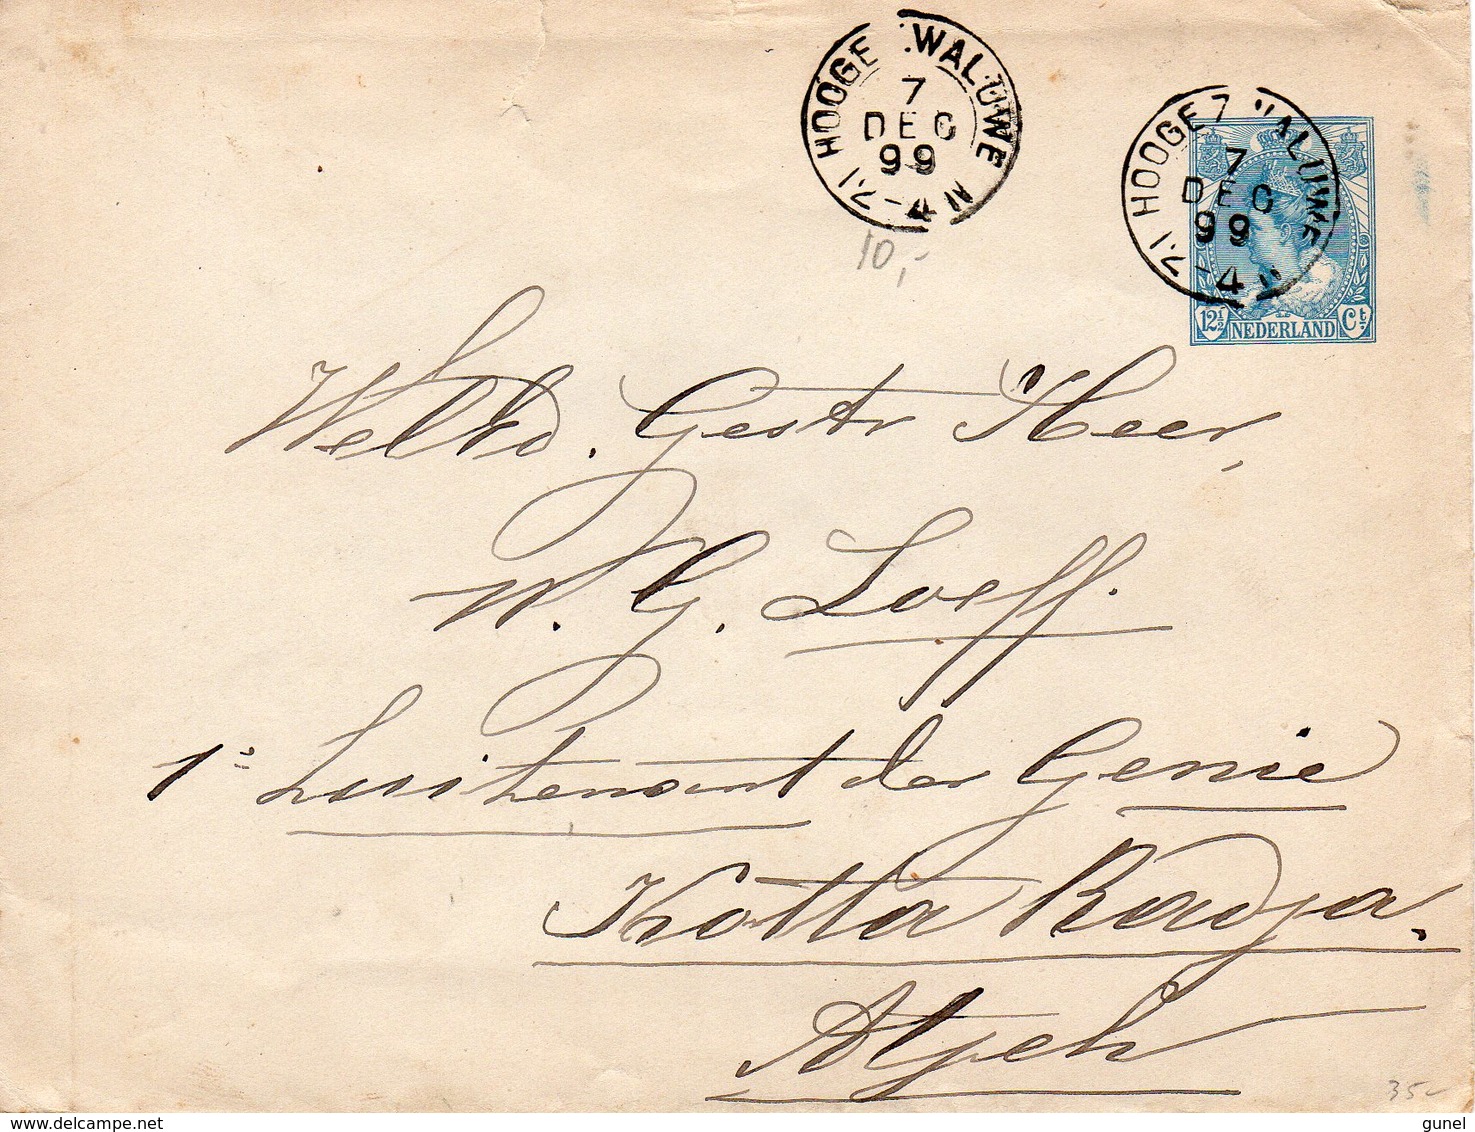 HOOGE ZWALUWE
7
DEC
99
7.1 - 4 N
HOOGE ZWALUWE
7
DEC
99
7.1 - 4 N
12½ NEDERLAND Ct
10,-
WelEd. Gestr Heer,
W. G. Loeff.
1e Luitenant der Genie
Kotta Radja.
Atjeh
35-
delcampe.net
gunel